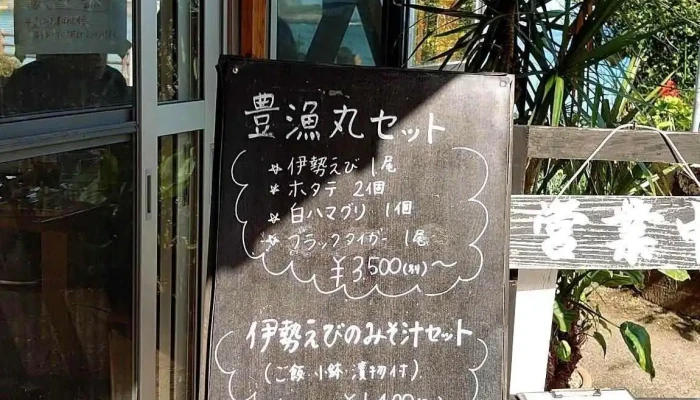 豊漁丸セット
☆伊勢えび 1尾
☆ホタテ 2個
☆白ハマグリ 1個
☆ブラックタイガー 1尾
¥3,500(別)〜
伊勢えびのみそ汁セット
(ご飯・小鉢・漬物付)
営業中